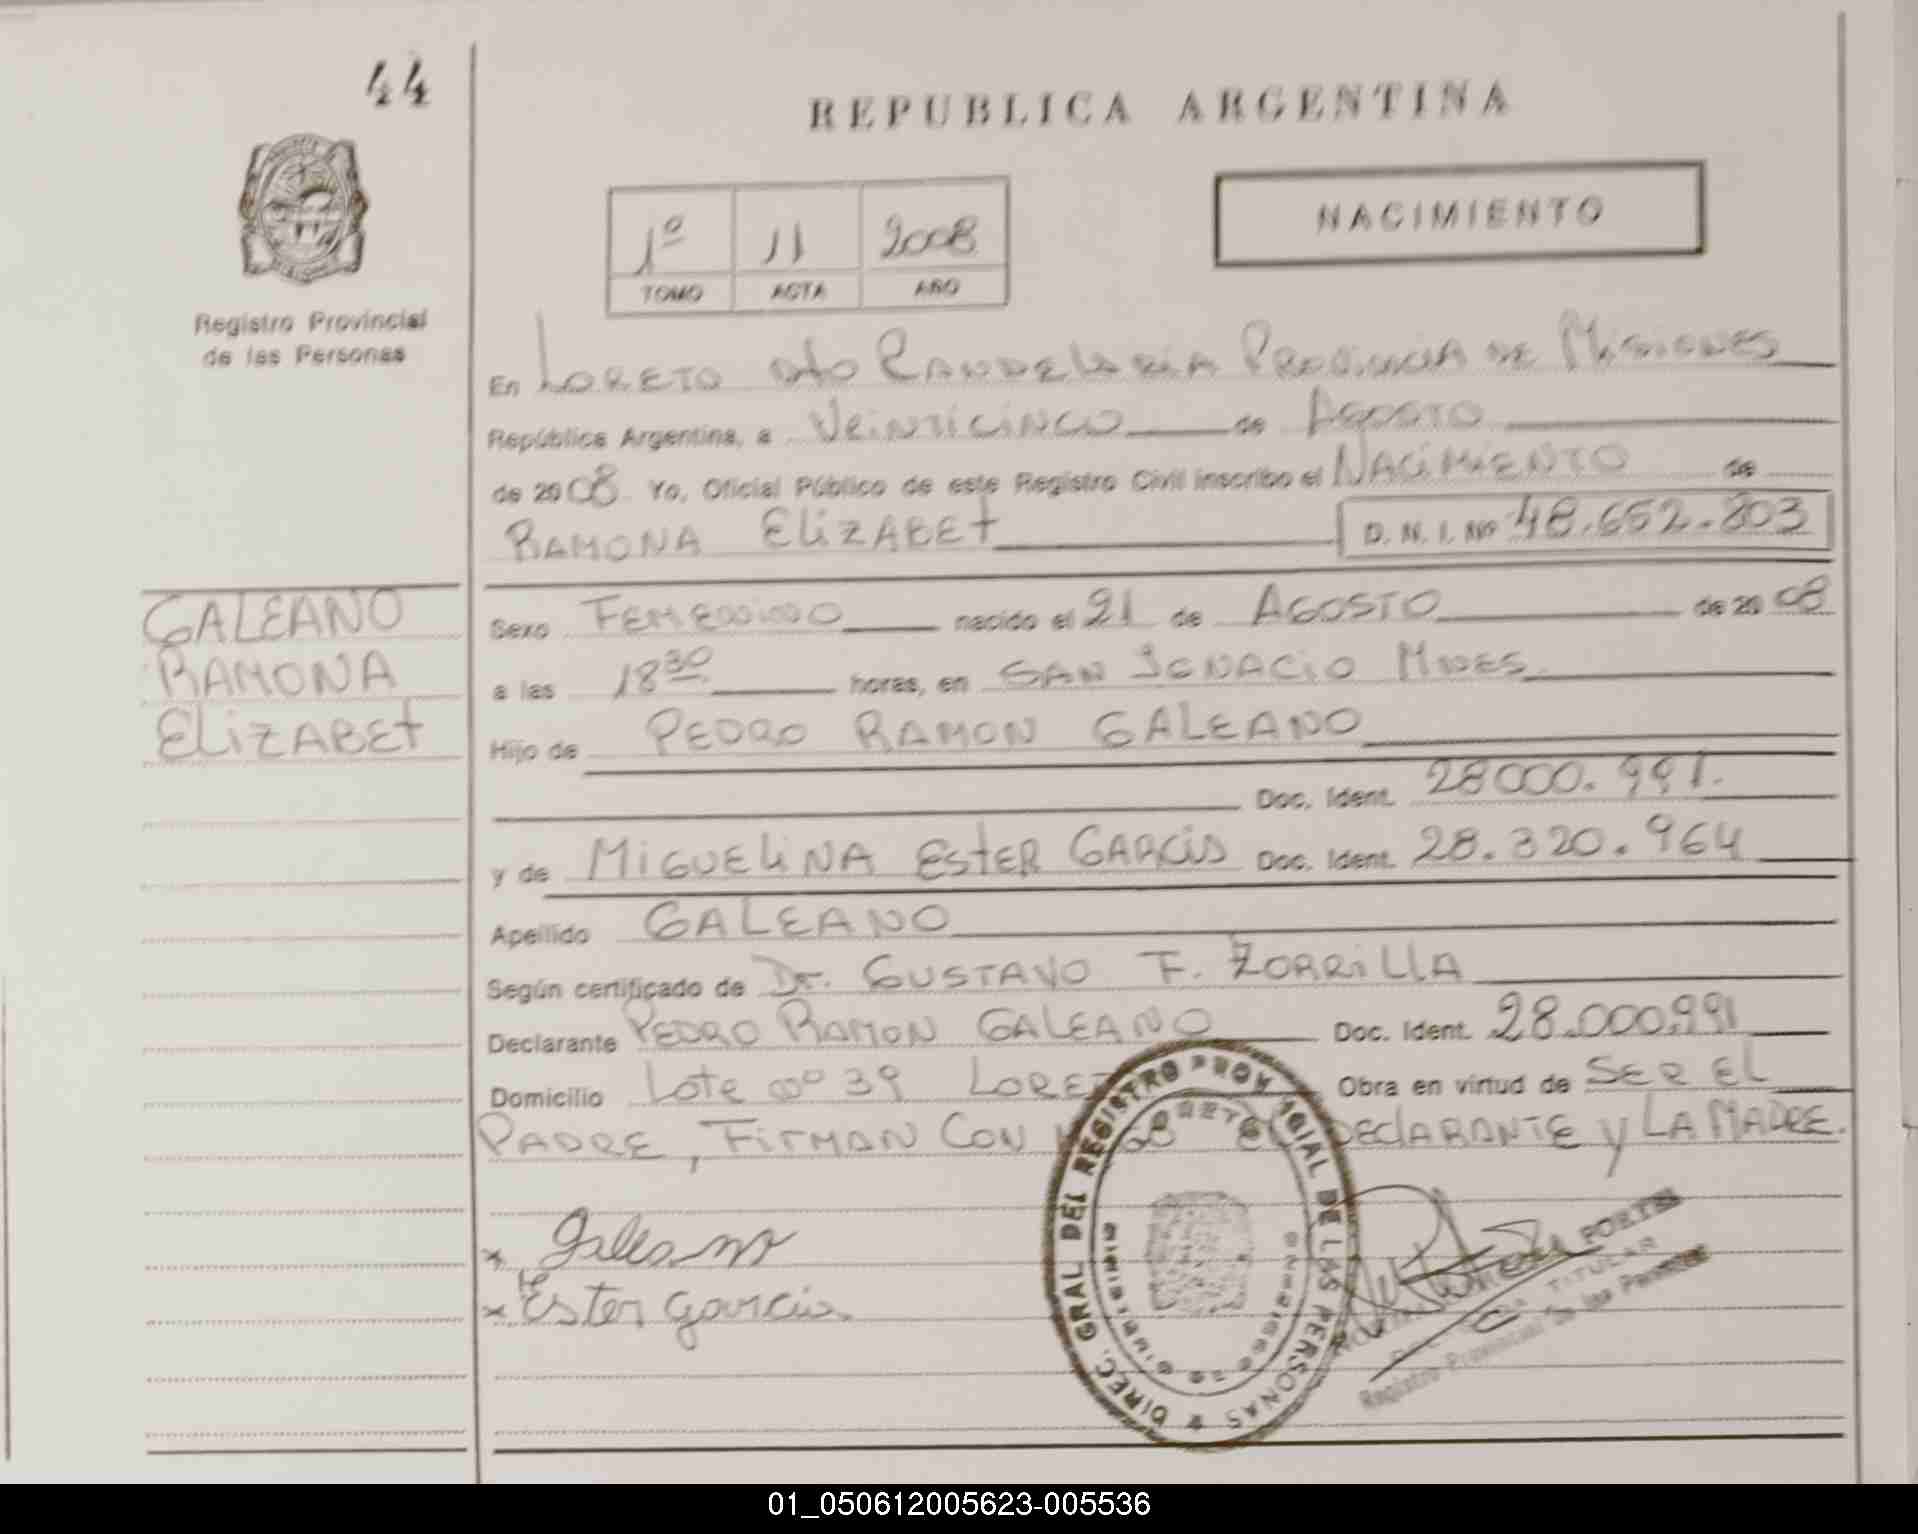 44
REPUBLICA ARGENTINA
NACIMIENTO
1º 11 2008
TOMO ACTA AÑO
Registro Provincial
de las Personas
En LORETO Dto CANDELARIA PROVINCIA DE MISIONES
República Argentina, a VEINTICINCO de AGOSTO
de 2008 Yo, Oficial Público de este Registro Civil inscribo el NACIMIENTO de
RAMONA ELIZABET D.N.I. Nº 48.652.803
GALEANO
RAMONA
ELIZABET
Sexo FEMENINO nacido el 21 de AGOSTO de 2008
a las 18 30 horas, en SAN IGNACIO MNES.
Hijo de PEDRO RAMON GALEANO
Doc. Ident. 28000.991.
y de MIGUELINA ESTER GARCIA Doc. Ident. 28.320.964
Apellido GALEANO
Según certificado de Dr. GUSTAVO F. ZORRILLA
Declarante PEDRO RAMON GALEANO Doc. Ident. 28.000.991
Domicilio Lote nº 39 LORETO Obra en virtud de SER EL
PADRE, FIRMAN CON DECLARANTE Y LA MADRE.
* Galeano
* Ester Garcia
DIREC. GRAL DEL REGISTRO PROVINCIAL DE LAS PERSONAS
LORETO
MISIONES
PORTEL
TITULAR
Registro Provincial de las Personas
01_050612005623-005536